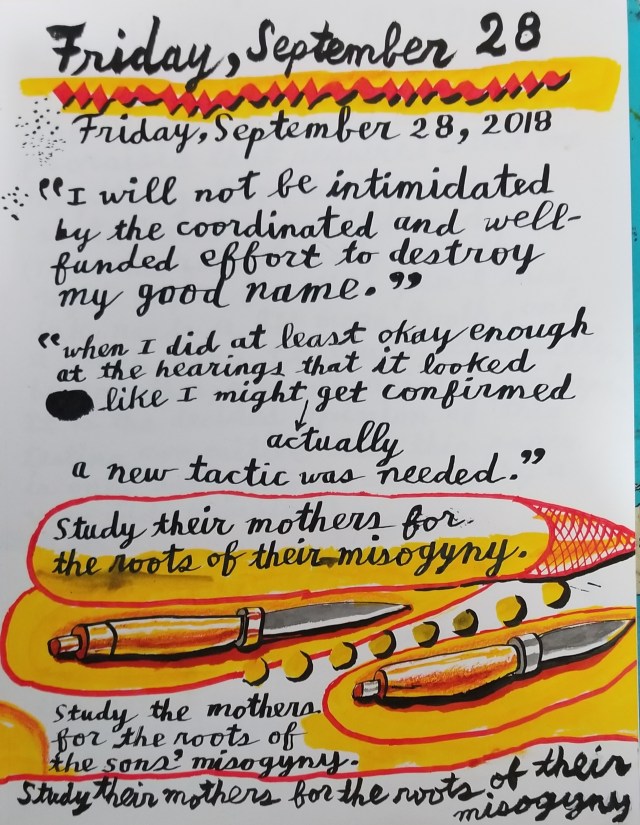 Friday, September 28
Friday, September 28, 2018
"I will not be intimidated
by the coordinated and well-
funded effort to destroy
my good name."
"when I did at least okay enough
at the hearings that it looked
like I might get confirmed
actually
a new tactic was needed."
Study their mothers for
the roots of their misogyny.
Study the mothers
for the roots of
the sons' misogyny.
Study their mothers for the roots of their
misogyny